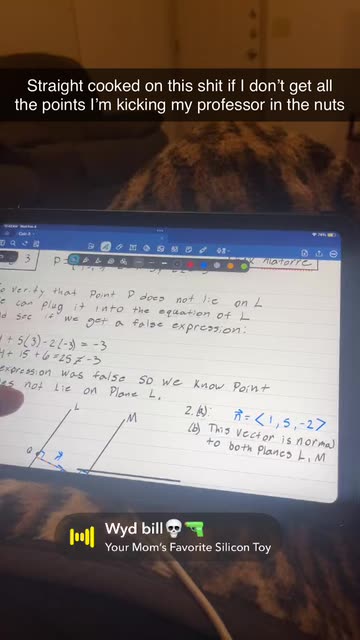 Straight cooked on this shit if I don't get all
the points I'm kicking my professor in the nuts
3
P=
verify that Point P does not lie on L
can plug it into the equation of L
see if we get a false expression:
+ 5(3)-2(-3) = -3
+ 15 + 6 = 25 ≠ -3
expression was false so we know Point
not lie on Plane L.
L
M
Q
2.(a): n = <1, 5, -2>
(b) This vector is normal
to both planes L, M
Wyd bill💀🔫
Your Mom's Favorite Silicon Toy